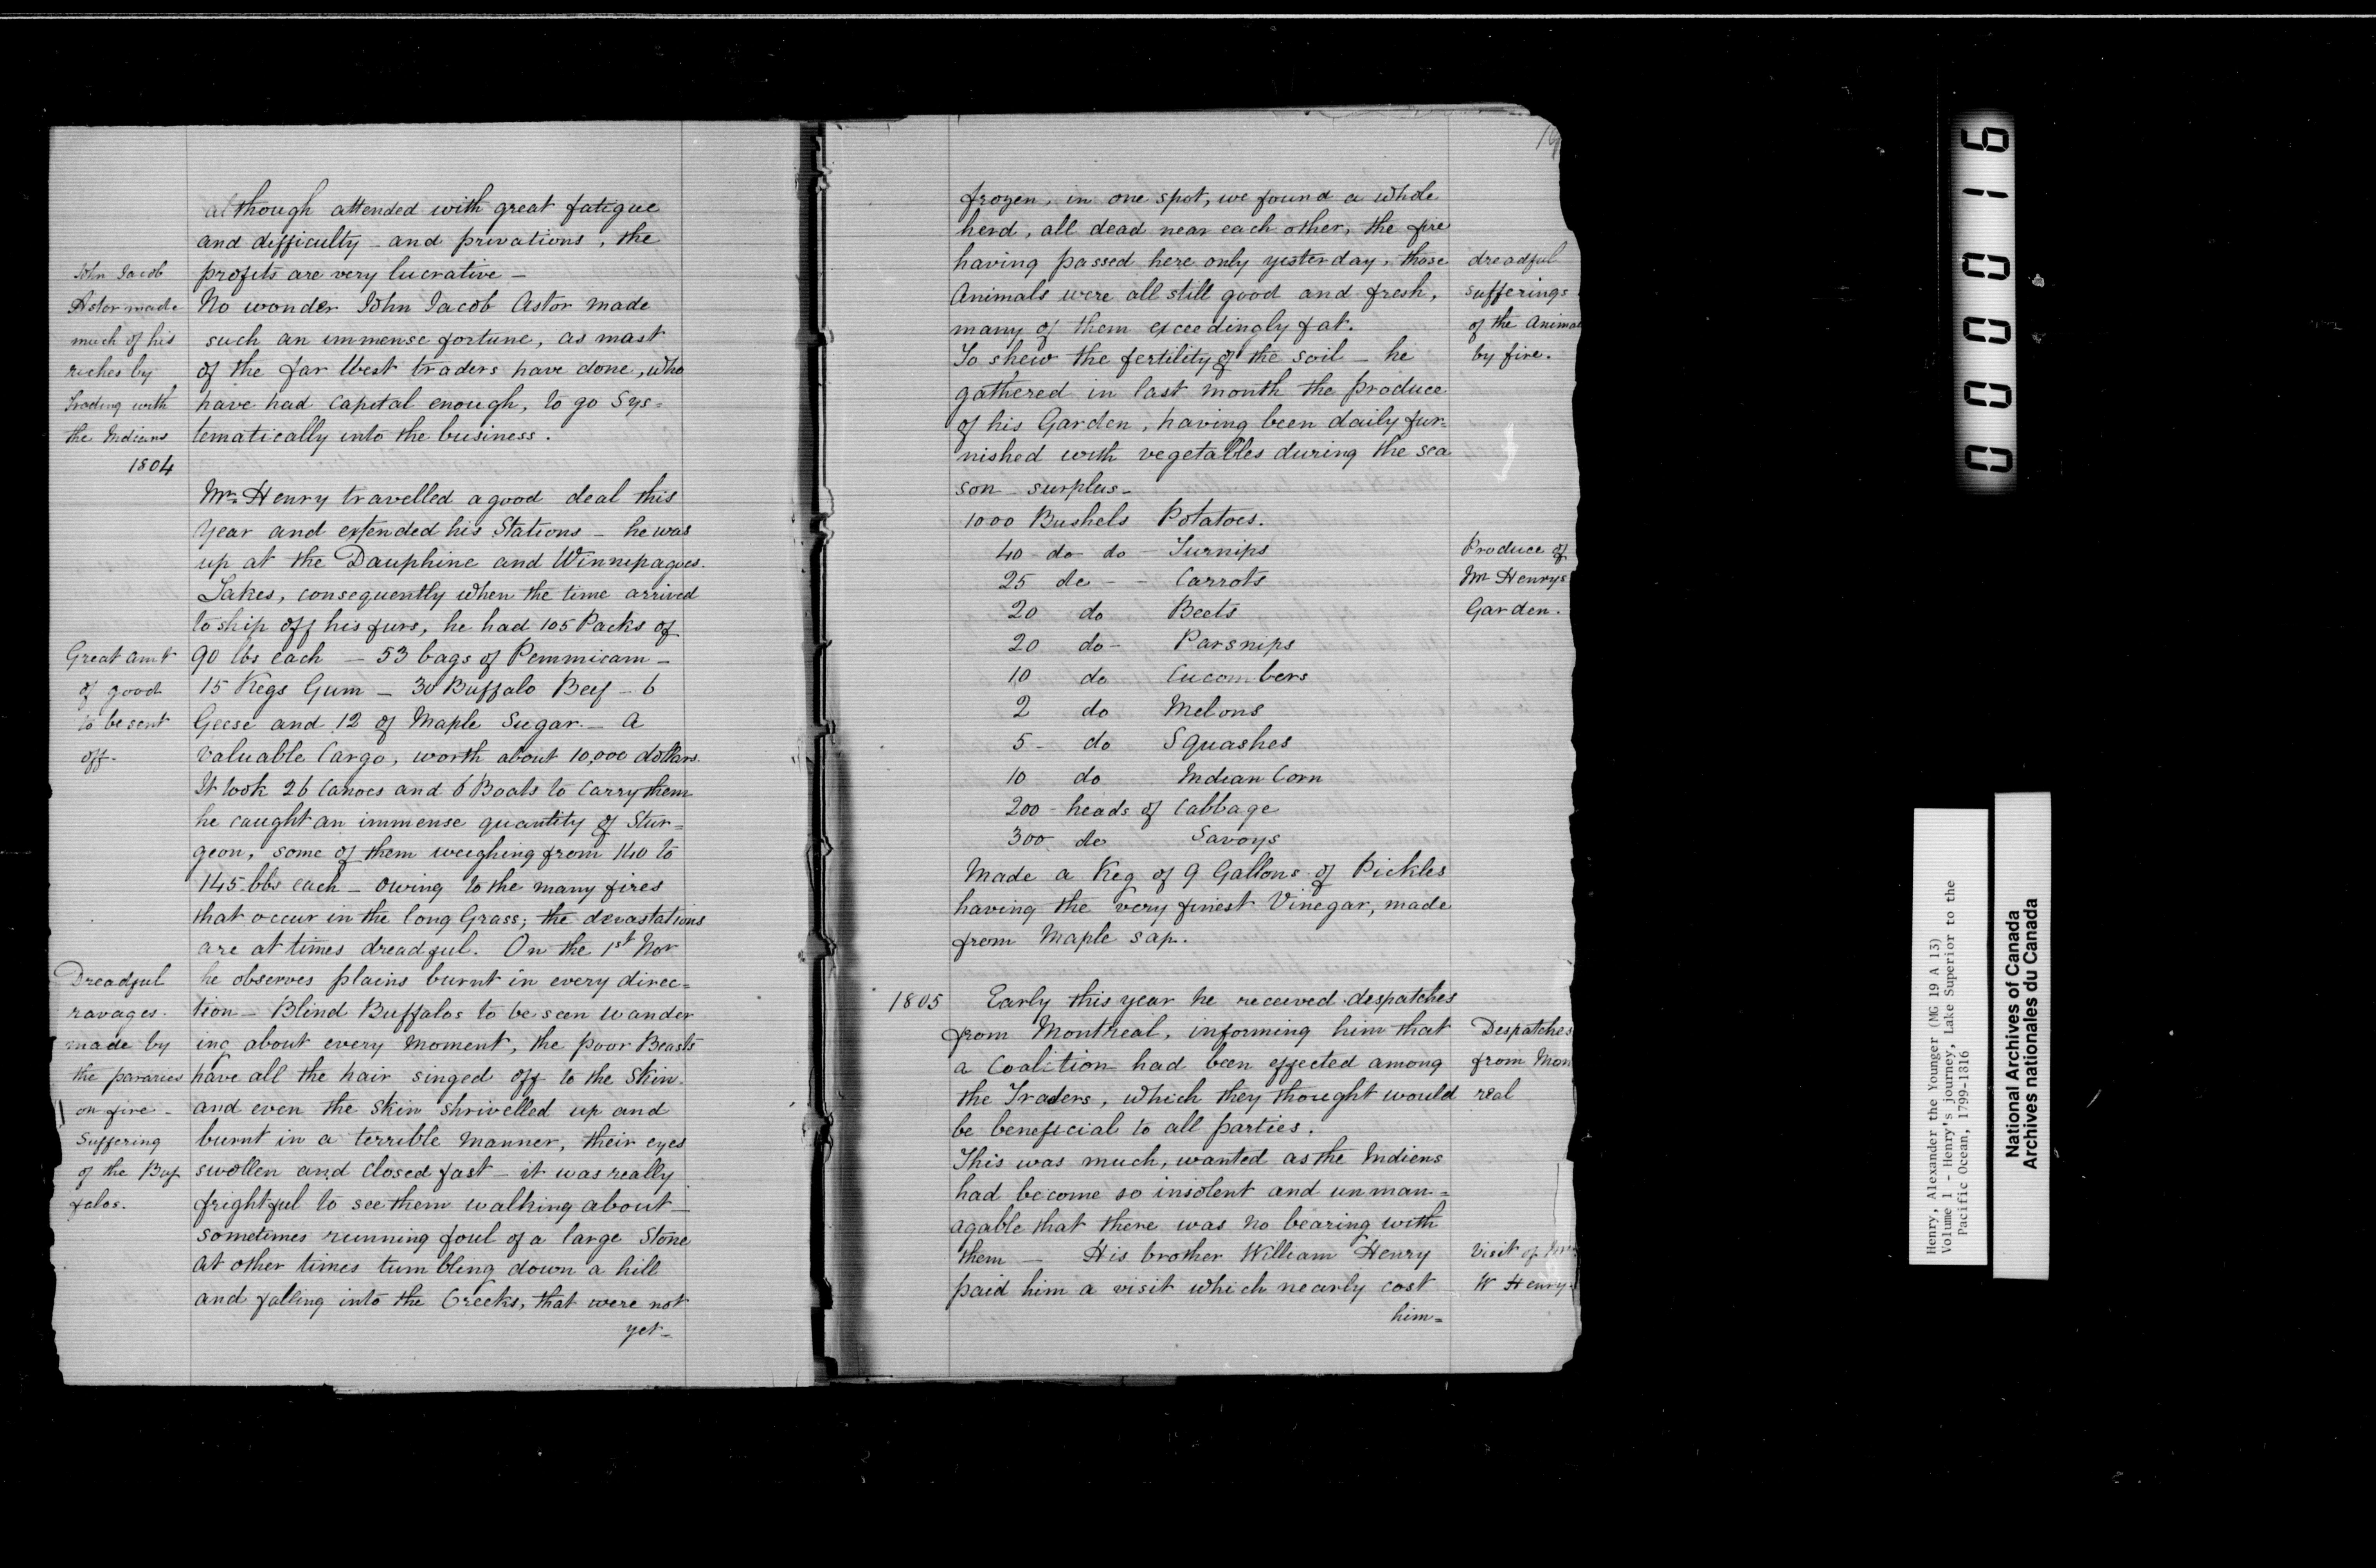 although attended with great fatigue
and difficulty - and privations, the
profits are very lucrative -
No wonder John Jacob Astor made
such an immense fortune, as mast
of the far West traders have done, who
have had capital enough, to go Sys=
tematically into the business.
John Jacob
Astor made
much of his
riches by
trading with
the Indians
1804
Mr. Henry travelled a good deal this
Year and extended his Stations - he was
up at the Dauphine and Winnepagues.
Lakes, consequently when the time arrived
to ship off his furs, he had 105 Packs of
90 lbs each - 53 bags of Pemmicam -
15 Kegs Gum - 30 Buffalo Beef - 6
Geese and 12 of Maple Sugar - a
valuable Cargo, worth about 10,000 dollars.
It took 26 Canoes and 6 Boats to carry them
he caught an immense quantity of Stur=
geon, some of them weighing from 140 to
145 lbs each - owing to the many fires
that occur in the long Grass; the devastations
are at times dreadful. On the 1st Nov
he observes plains burnt in every direc=
tion - Blind Buffalos to be seen wander
ing about every moment, the poor Beasts
have all the hair singed off to the Skin.
and even the skin shrivelled up and
burnt in a terrible manner, their eyes
swollen and closed fast - it was really
frightful to see them walking about -
sometimes running foul of a large Stone
at other times tumbling down a hill
and falling into the Creeks, that were not
yet -
Great amt
of good
to be sent
off.
Dreadful
ravages.
made by
the pararies
on fire -
Suffering
of the Buf
falos.
19
frozen, in one spot, we found a whole
herd, all dead near each other, the fire
having passed here only yesterday, those
Animals were all still good and fresh,
many of them exceedingly fat.
To shew the fertility of the soil - he
gathered in last month the produce
of his Garden, having been daily fur=
nished with vegetables during the sea
son - surplus -
dreadful
sufferings
of the Animal
by fire.
1000 Bushels Potatoes.
40 - do do - Turnips
25 do - - Carrots
20 do Beets
20 do - Parsnips
10 do Cucombers
2 do Melons
5 - do Squashes
10 do Indian Corn
200 - heads of Cabbage
300 do Savoys
Produce of
Mr Henrys
Garden.
Made a Keg of 9 Gallons of Pickles
having the very finest Vinegar, made
from Maple sap.
1805 Early this year he received despatches
from Montreal, informing him that
a Coalition had been effected among
the Traders, which they thought would
be beneficial to all parties.
This was much, wanted as the Indiens
had become so insolent and unman=
agable that there was no bearing with
them - His brother William Henry
paid him a visit which nearly cost
him =
Despatches
from Mon
real
Visit of Mr
W Henry.
000016
Henry, Alexander the Younger (MG 19 A 13)
Volume 1 - Henry's journey, Lake Superior to the
Pacific Ocean, 1799-1816
National Archives of Canada
Archives nationales du Canada